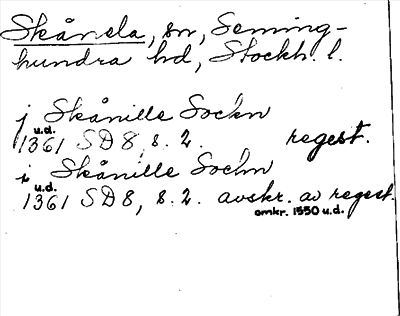 Skånela, sn, Seming-
hundra hd, Stockh. l.
j Skånille Sockn
u.d.
1361 SD 8, s. 2. regest.
i Skånille Sochn
u.d.
1361 SD 8, s. 2. avskr. av regest.
omkr. 1550 u.d.